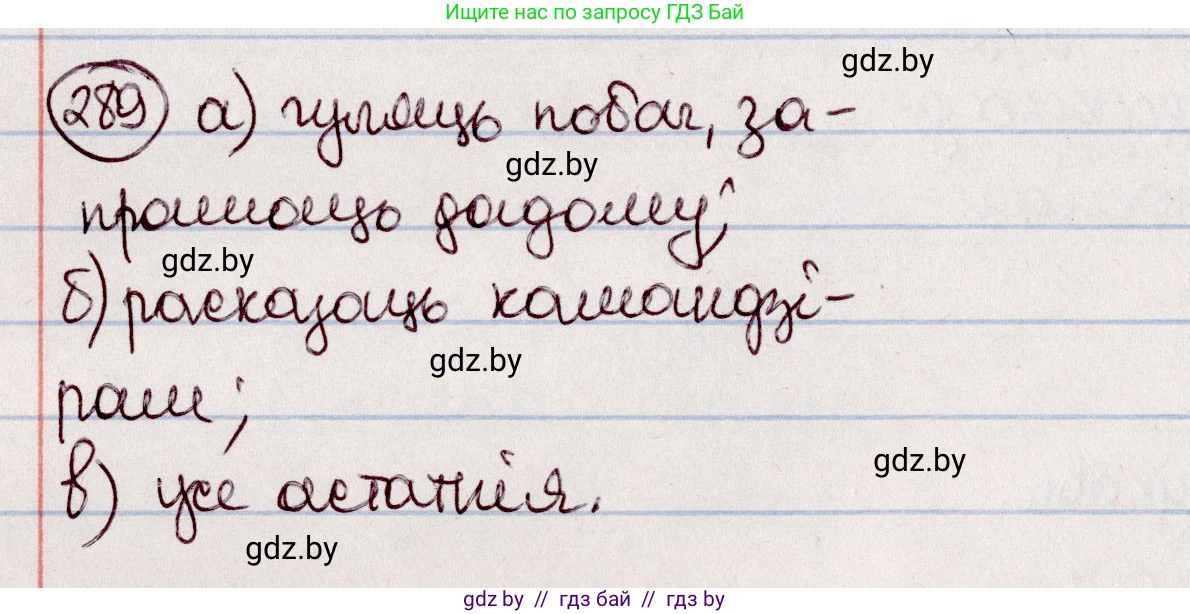 Ищите нас по запросу ГДЗ Бай
gdz.by
289 а) гуляць побач, за-
gdz.by
прашаць дадому;
gdz.by
б) расказаць камандзі-
gdz.by
рам;
gdz.by
в) усе астатнія.
gdz.by
gdz by // гдз бай // gdz by